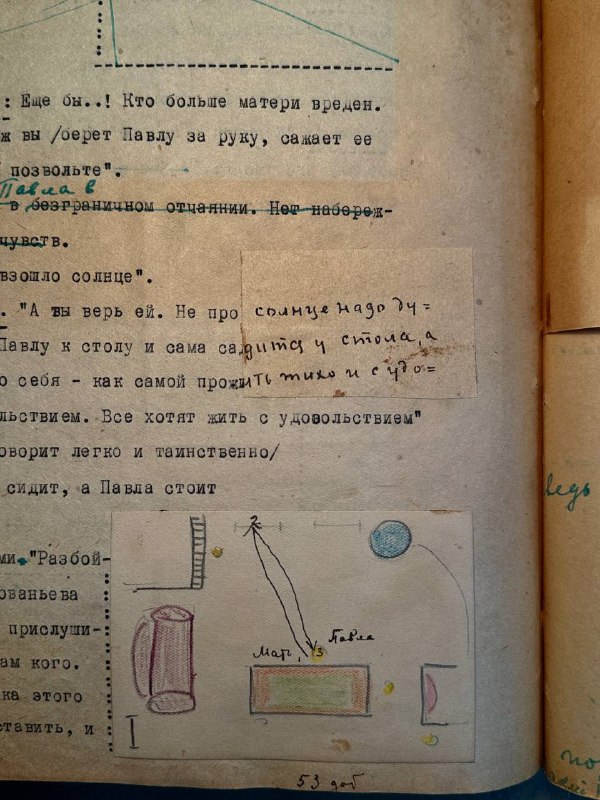 : Еще бы..! Кто больше матери вреден.
ж вы /берет Павлу за руку, сажает ее
позвольте".
Павла в
в безграничном отчаянии. Нет набереж-
чувств.
взошло солнце".
. "А ты верь ей. Не про солнце надо ду=
Павлу к столу и сама садится у стола, а
о себя - как самой прожить тихо и с удо=
льствием. Все хотят жить с удовольствием"
оворит легко и таинственно/
сидит, а Павла стоит
ми. "Разбой-
ованьева
прислуши-
ам кого.
ка этого
ставить, и
2
Павла
Мать
3
I
53 доб
ведь